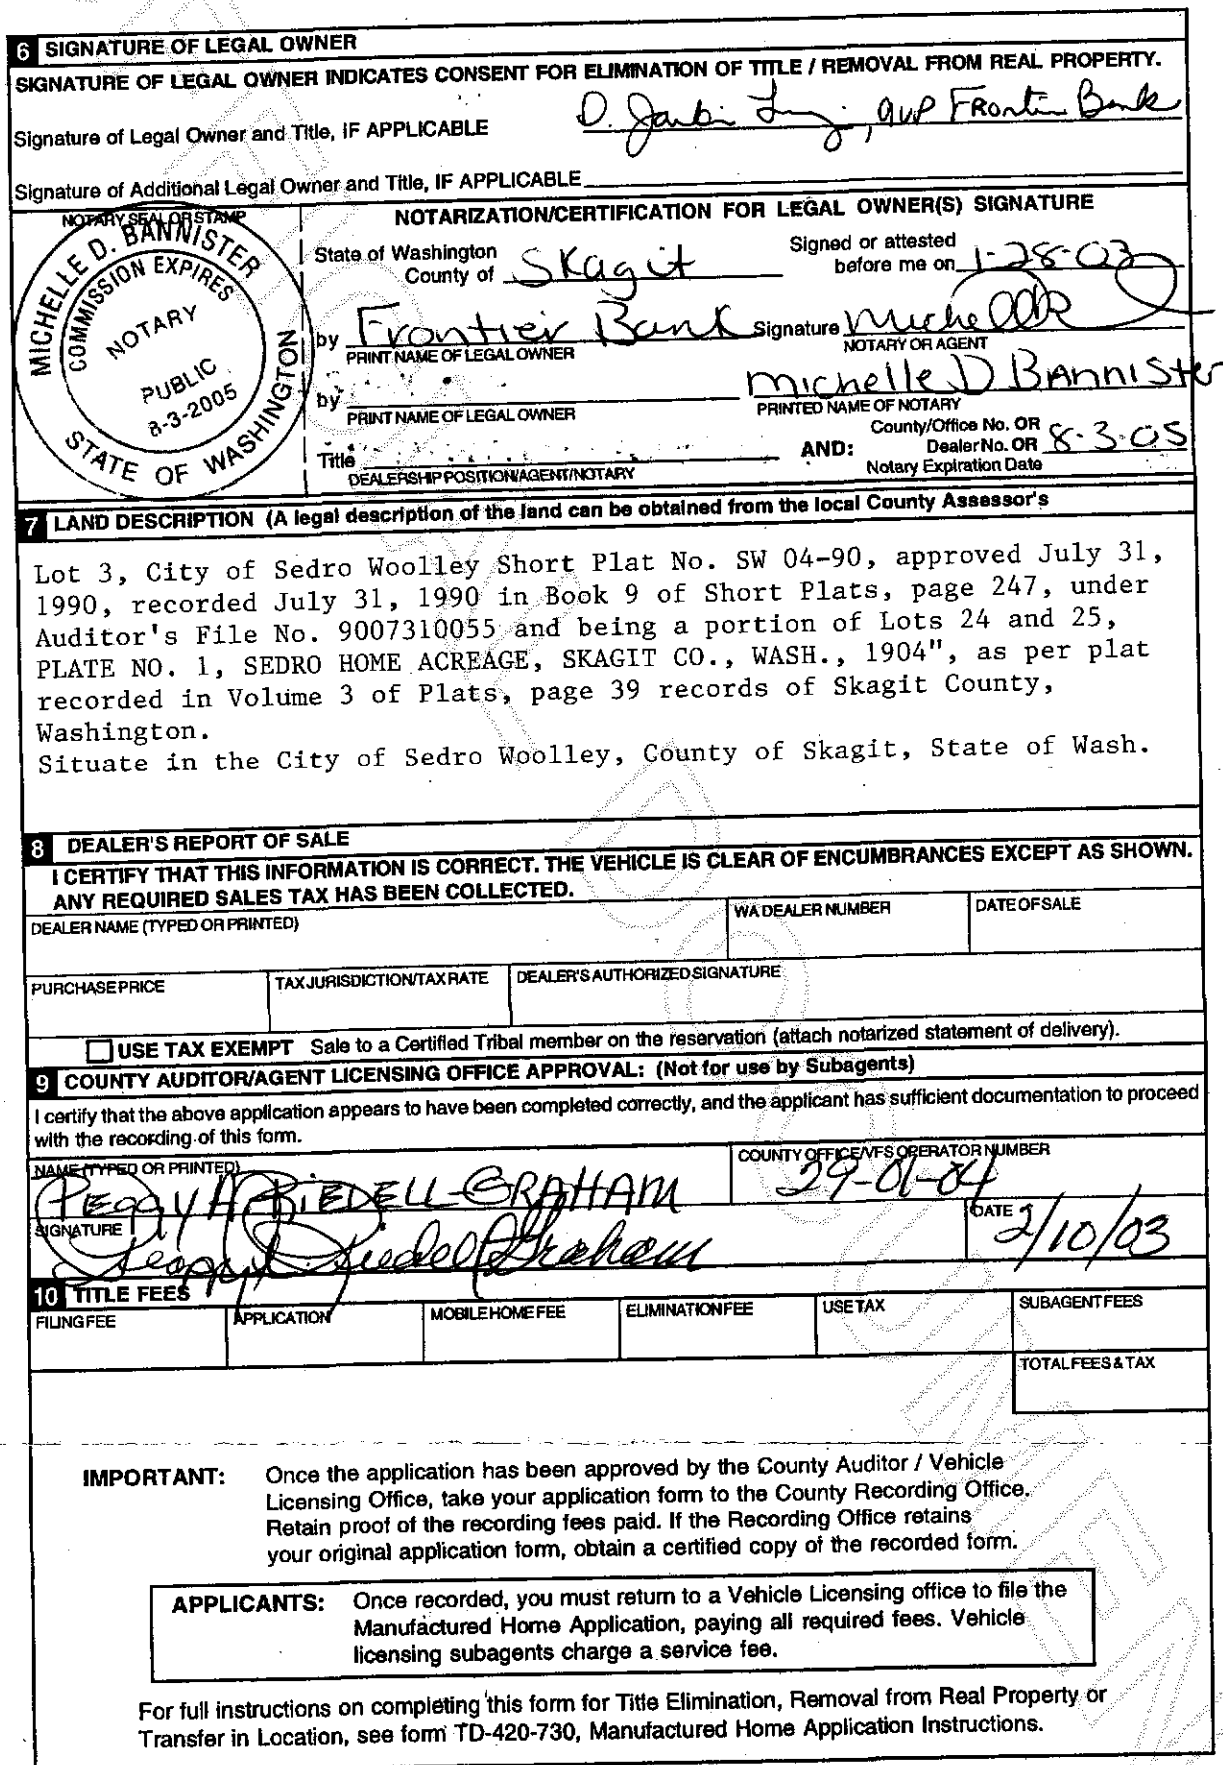 6 SIGNATURE OF LEGAL OWNER
SIGNATURE OF LEGAL OWNER INDICATES CONSENT FOR ELIMINATION OF TITLE / REMOVAL FROM REAL PROPERTY.
Signature of Legal Owner and Title, IF APPLICABLE D. , AVP Frontier Bank
Signature of Additional Legal Owner and Title, IF APPLICABLE
NOTARY SEAL OR STAMP
MICHELLE D. BANNISTER
COMMISSION EXPIRES
NOTARY
PUBLIC
8-3-2005
STATE OF WASHINGTON
NOTARIZATION/CERTIFICATION FOR LEGAL OWNER(S) SIGNATURE
State of Washington
County of Skagit
Signed or attested
before me on 1-28-03
by Frontier Bank Signature Michelle
PRINT NAME OF LEGAL OWNER NOTARY OR AGENT
by Michelle D BAnnister
PRINT NAME OF LEGAL OWNER PRINTED NAME OF NOTARY
Title AND: County/Office No. OR
Dealer No. OR 8.3.05
Notary Expiration Date
DEALERSHIP POSITION/AGENT/NOTARY
7 LAND DESCRIPTION (A legal description of the land can be obtained from the local County Assessor's
Lot 3, City of Sedro Woolley Short Plat No. SW 04-90, approved July 31,
1990, recorded July 31, 1990 in Book 9 of Short Plats, page 247, under
Auditor's File No. 9007310055 and being a portion of Lots 24 and 25,
PLATE NO. 1, SEDRO HOME ACREAGE, SKAGIT CO., WASH., 1904", as per plat
recorded in Volume 3 of Plats, page 39 records of Skagit County,
Washington.
Situate in the City of Sedro Woolley, County of Skagit, State of Wash.
8 DEALER'S REPORT OF SALE
I CERTIFY THAT THIS INFORMATION IS CORRECT. THE VEHICLE IS CLEAR OF ENCUMBRANCES EXCEPT AS SHOWN.
ANY REQUIRED SALES TAX HAS BEEN COLLECTED.
DEALER NAME (TYPED OR PRINTED) WA DEALER NUMBER DATE OF SALE
PURCHASE PRICE TAX JURISDICTION/TAX RATE DEALER'S AUTHORIZED SIGNATURE
USE TAX EXEMPT Sale to a Certified Tribal member on the reservation (attach notarized statement of delivery).
9 COUNTY AUDITOR/AGENT LICENSING OFFICE APPROVAL: (Not for use by Subagents)
I certify that the above application appears to have been completed correctly, and the applicant has sufficient documentation to proceed
with the recording of this form.
NAME (TYPED OR PRINTED) COUNTY OFFICE/VFS OPERATOR NUMBER
PEGGY A RIEDELL-GRAHAM 29-01-04
SIGNATURE DATE
Peggy A. Riedell Graham 2/10/03
10 TITLE FEES
FILING FEE APPLICATION MOBILE HOME FEE ELIMINATION FEE USE TAX SUBAGENT FEES
TOTAL FEES & TAX
IMPORTANT: Once the application has been approved by the County Auditor / Vehicle
Licensing Office, take your application form to the County Recording Office.
Retain proof of the recording fees paid. If the Recording Office retains
your original application form, obtain a certified copy of the recorded form.
APPLICANTS: Once recorded, you must return to a Vehicle Licensing office to file the
Manufactured Home Application, paying all required fees. Vehicle
licensing subagents charge a service fee.
For full instructions on completing this form for Title Elimination, Removal from Real Property or
Transfer in Location, see form TD-420-730, Manufactured Home Application Instructions.